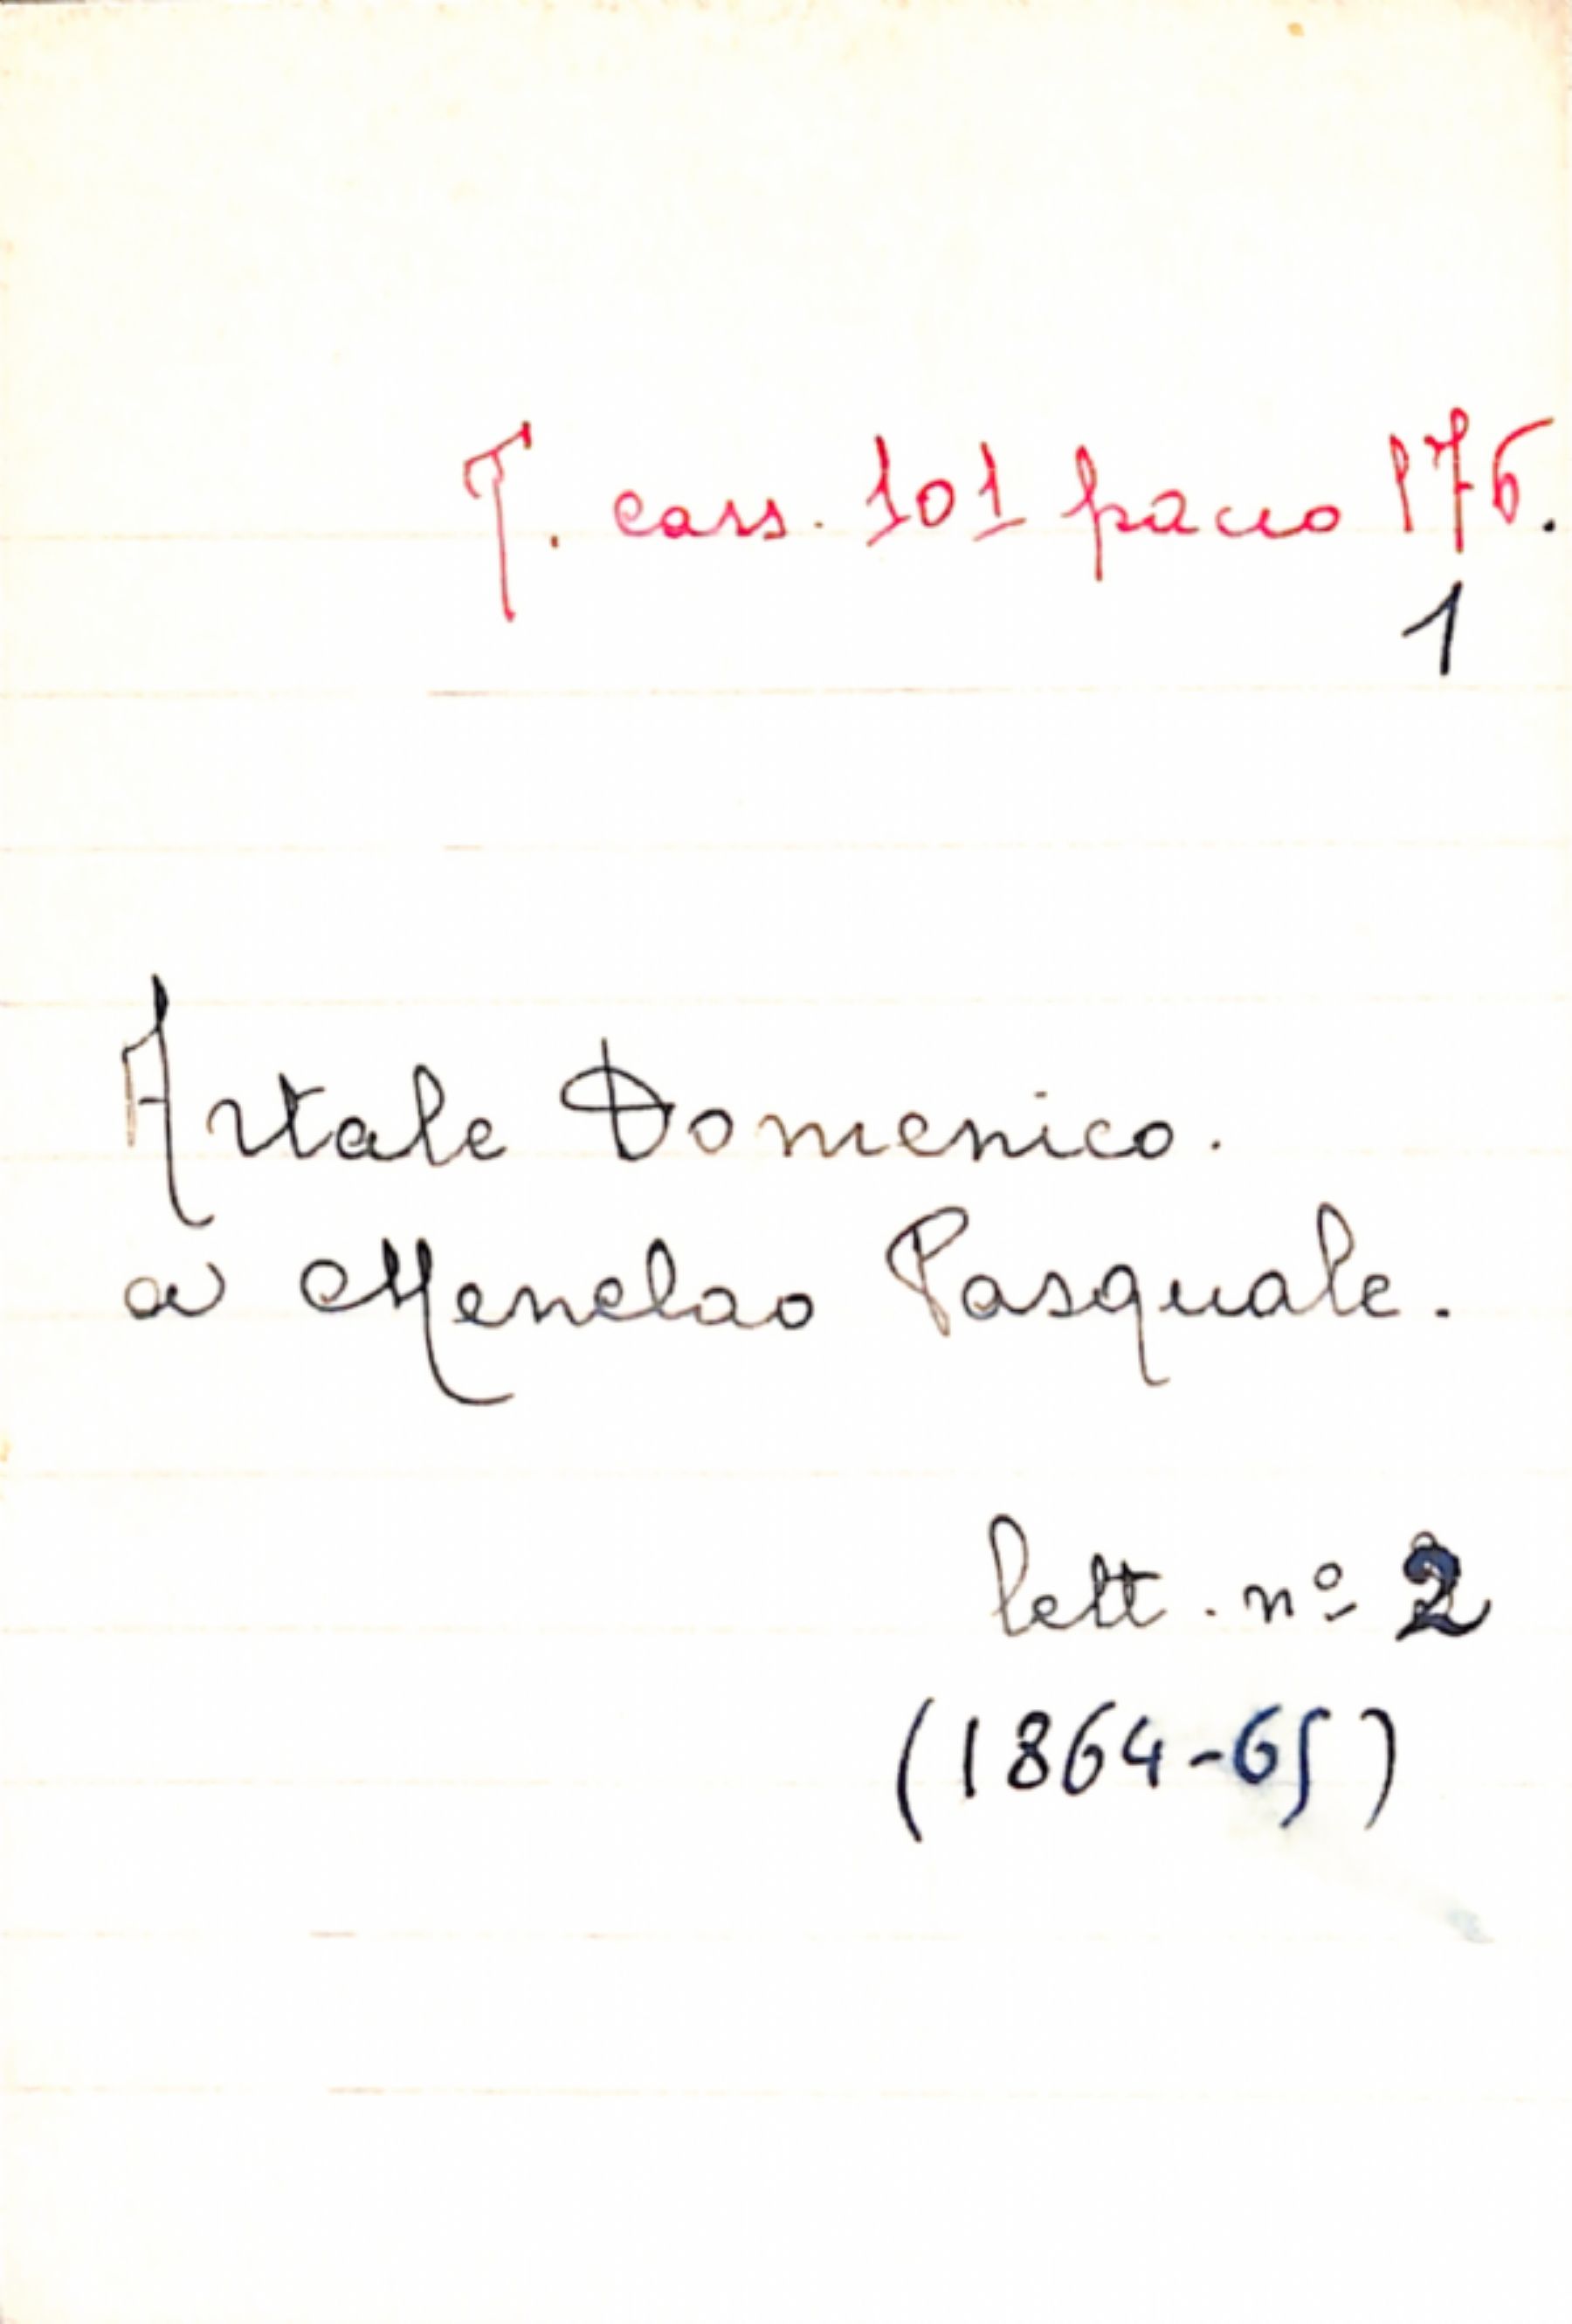 T. cass. 101 pacco 176.
1
Artale Domenico.
a Menelao Pasquale.
lett. nº 2
(1864-65)